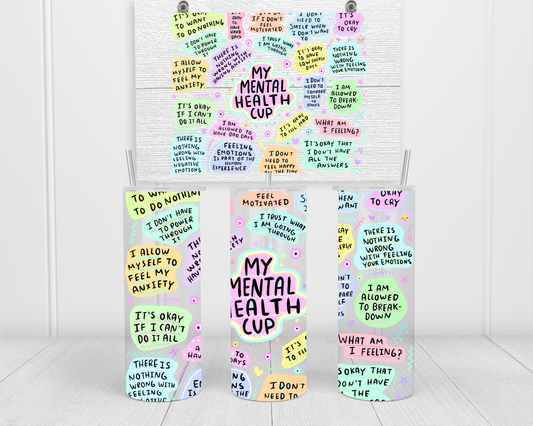 IT'S OKAY
TO WANT
TO DO NOTHING
OKAY
TO
HAVE
HARD
DAYS
IF I DON'T
FEEL
MOTIVATED
I DON'T
NEED TO
SMILE WHEN
I DON'T WANT
TO
IT'S
OKAY
TO CRY
I DON'T HAVE
TO POWER
THROUGH
IT
THERE IS
NOTHING
WRONG WITH
HAVING
ANXIETY
I TRUST WHAT
I AM GOING
THROUGH
IT'S OKAY
TO HAVE
LOW ENERGY
DAYS
THERE IS
NOTHING WRONG
WITH FEELING
YOUR EMOTIONS
I ALLOW
MYSELF TO
FEEL MY
ANXIETY
MY
MENTAL
HEALTH
CUP
I DON'T
NEED TO
COMPARE
MYSELF
TO
I AM
ALLOWED
TO BREAK-
DOWN
IT'S OKAY
IF I CAN'T
DO IT ALL
I AM
ALLOWED TO
HAVE BAD DAYS
IT'S OKAY
TO FEEL
WHAT AM
I FEELING?
THERE IS
NOTHING
WRONG WITH
FEELING
NEGATIVE
EMOTIONS
FEELING
EMOTIONS
IS PART OF THE
HUMAN
EXPERIENCE
I DON'T
NEED TO
FEEL HAPPY
ALL THE TIME
IT'S OKAY THAT
I DON'T HAVE
ALL THE
ANSWERS
TO WANT
TO DO NOTHING
I DON'T HAVE
TO POWER
THROUGH
IT
I ALLOW
MYSELF TO
FEEL MY
ANXIETY
IT'S OKAY
IF I CAN'T
DO IT ALL
THERE IS
NOTHING
WRONG WITH
FEELING
FEEL
MOTIVATED
I TRUST WHAT
I AM GOING
THROUGH
MY
MENTAL
HEALTH
CUP
I DON'T
NEED TO
OKAY
TO CRY
THERE IS
NOTHING
WRONG
WITH FEELING
YOUR EMOTIONS
I AM
ALLOWED
TO BREAK-
DOWN
WHAT AM
I FEELING?
OKAY THAT
DON'T HAVE
THE